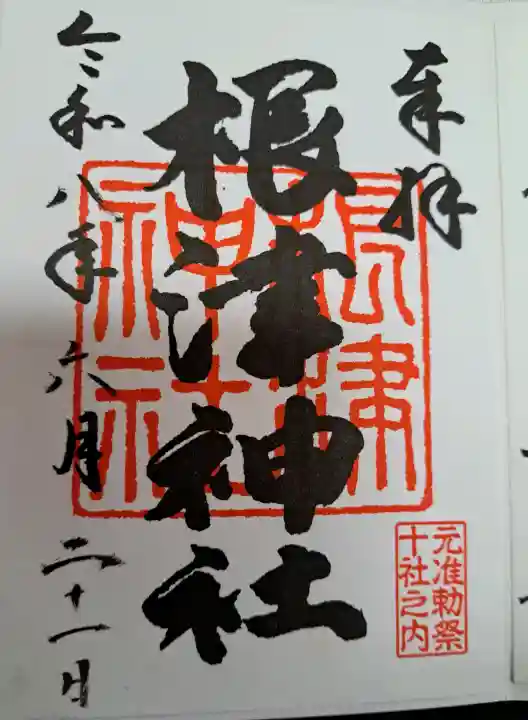 奉拝
根津神社
根津神社
元准勅祭
十社之内
令和八年六月二十一日